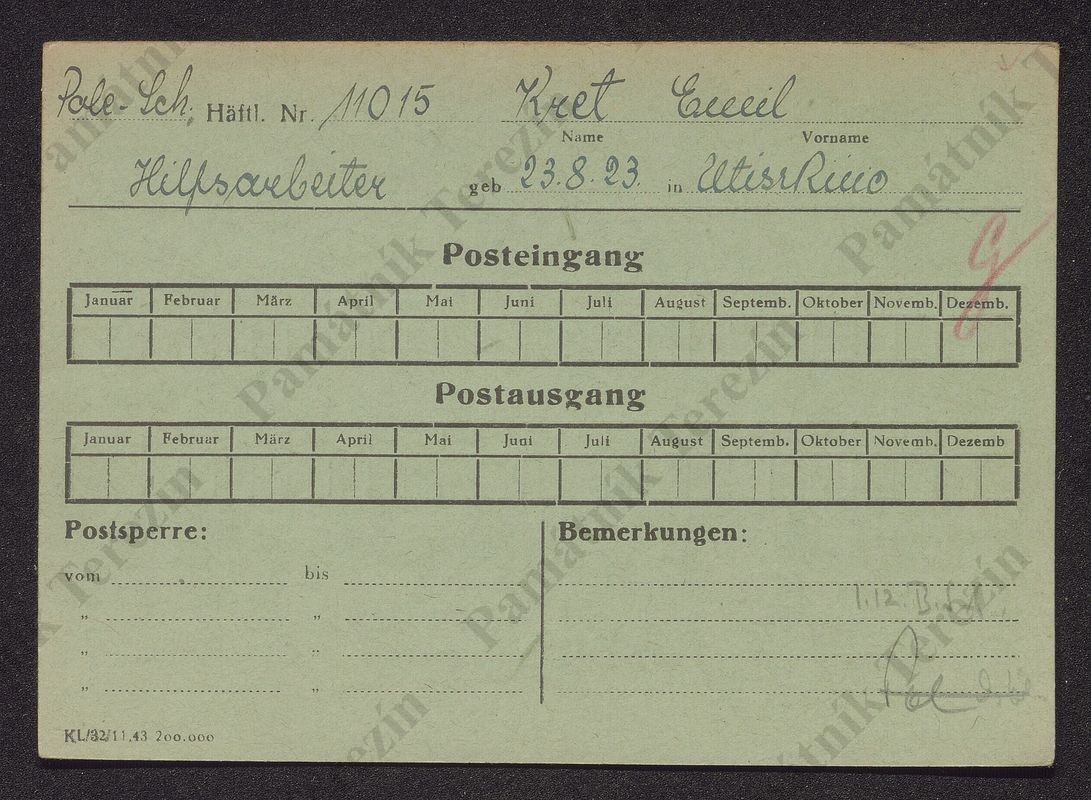 Pole-Sch. Häftl. Nr. 11015 Kret Emil
Name Vorname
Hilfsarbeiter geb 23.8.23. in
Posteingang
Januar Februar März April Mai Juni Juli August Septemb. Oktober Novemb. Dezemb.
Postausgang
Januar Februar März April Mai Juni Juli August Septemb. Oktober Novemb. Dezemb
Postsperre: Bemerkungen:
vom bis
„ „
„ „
„ „
1.12. B.
KL/32/11.43 200.000
Památník Terezín